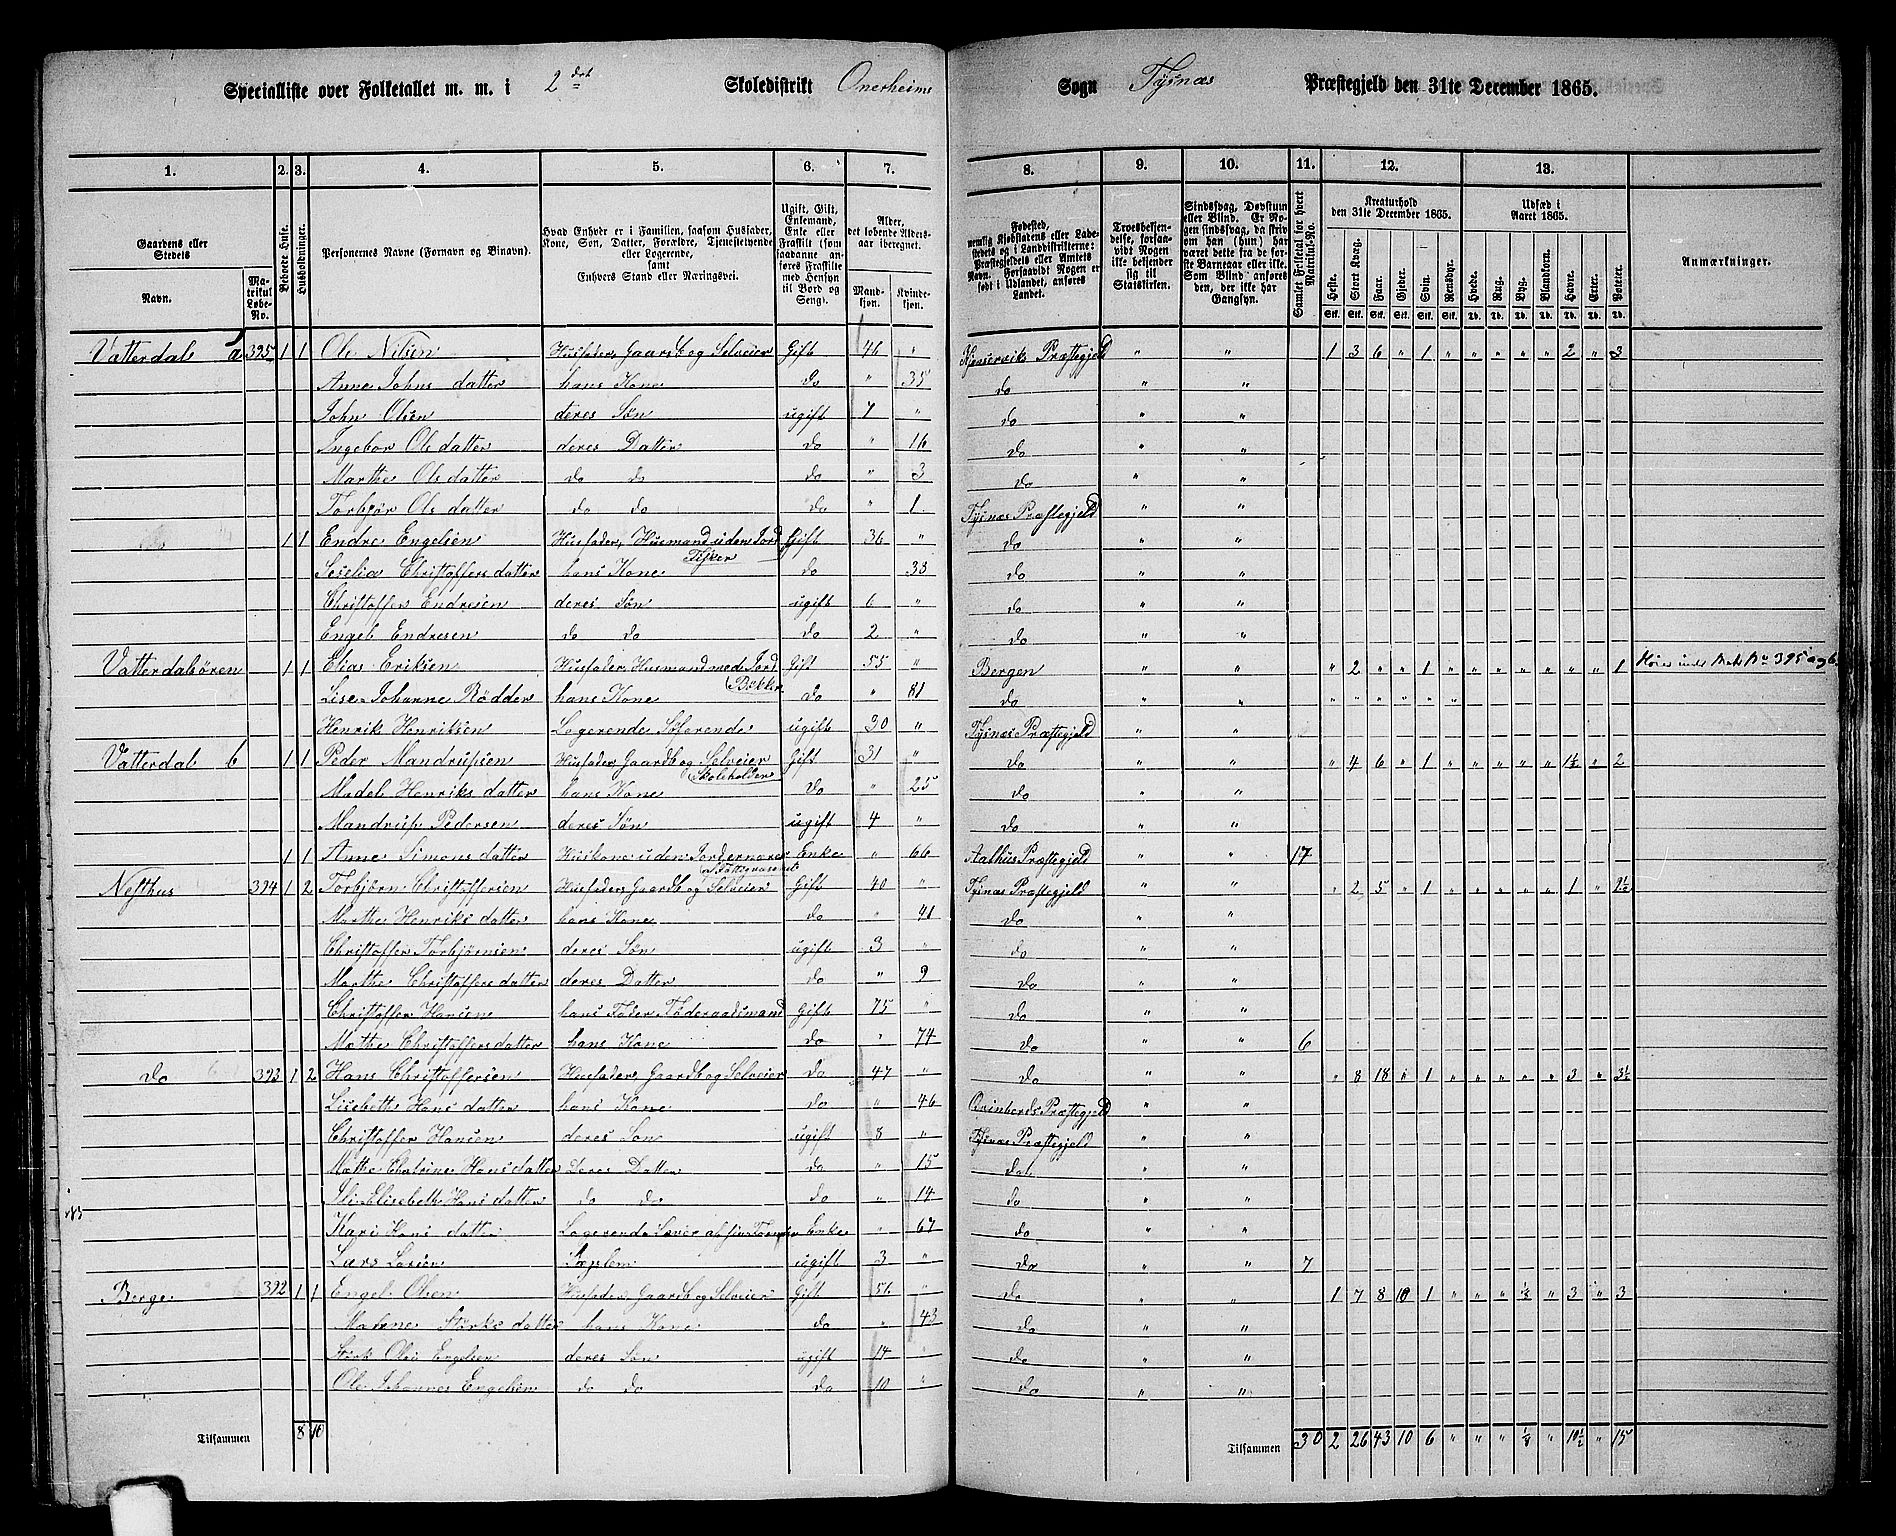 Specialliste over Folketallet m. m. i 2det Skoledistrikt Onerheims Sogn Tysnæs Præstegjeld den 31te December 1865.
1. 2. 3. 4. 5. 6. 7. 8. 9. 10. 11. 12. 13.
Gaardens eller Stedets Navn. Matrikul Løbe-No. Beboede Huse. Husholdninger. Personernes Navne (Fornavn og Binavn). Hvad Enhver er i Familien, saasom Husfader, Kone, Søn, Datter, Forældre, Tjenestetyende eller Logerende, samt Enhvers Stand eller Næringsvei. Ugift, Gift, Enkemand, Enke eller Fraskilt (som saadanne anføres Fraskilte med Hensyn til Bord og Seng). Alder, det løbende Aldersaar iberegnet. Mandkjøn. Kvindekjøn.
Fødested, nemlig Kjøbstadens eller Ladestedets og i Landdistrikterne: Præstegjeldets eller Amtets Navn. Forsaavidt Nogen er født i Udlandet, anføres Landet. Troesbekjendelse, forsaavidt Nogen ikke bekjender sig til Statskirken. Sindssvag, Døvstum eller Blind. Er Nogen sindssvag, da skriv om han (hun) har været dette fra de første Barneaar eller ikke. Som Blind anføres den, der ikke har Gangsyn. Samlet Folketal for hvert Matrikul-No. Kreaturhold den 31te December 1865. Heste. Stort Kvæg. Faar. Gjeder. Svin. Rensdyr. Udsæd i Aaret 1865. Hvede. Rug. Byg. Blandkorn. Havre. Erter. Poteter. Anmærkninger.
Vatterdal a 395 1 1 Ole Nilsen Husfader, Gaardb og Selveier Gift 46 " Præstegjeld " " 1 3 6 " 1 " " " " " 2 " 3
Anne Johns datter hans Kone Do " 35 do " "
John Olsen deres Søn ugift 7 " do " "
Ingebor Ols datter deres Datter do " 16 do " "
Marthe Ols datter do do do " 3 do " "
Torbjør Ols datter do do do " 1 Tysnæs Præstegjeld " "
1 1 Endre Engelsen Husfader, Husmand uden Jord Fisker Gift 36 " do " "
Seselia Christoffers datter hans Kone do " 33 do " "
Christoffer Endresen deres Søn ugift 6 " do " "
Engel Endresen do do do 2 " do " "
Vatterdalsøren 1 1 Elias Eriksen Husfader, Husmand med Jord Bøkker Gift 55 " Bergen " " " 2 " " 1 " " " " " " " 1 Hører under Matr No 395 a og b
Lise Johanne Rödder hans Kone Do " 81 do " "
Henrik Henriksen Logerende Søfarende ugift 30 " Tysnæs Præstegjeld " "
Vatterdal b 1 1 Peder Mandrupsen Husfader Gaardb og Selveier Skoleholder Gift 31 " do " " " 4 6 " 1 " " " " " 1½ " 2
Madel Henriks datter hans Kone Do " 25 do " "
Mandrup Pedersen deres Søn ugift 4 " do " "
1 1 Anne Simons datter Huskone uden Jord Enke " 66 Præstegjeld " " 17
Nesthus 394 1 2 Torbjørn Christoffersen Husfader Gaardb og Selveier Gift 40 " Tysnæs Præstegjeld " " " 2 5 " 1 " " " " " 1 " 2½
Marthe Henriks datter hans Kone do " 41 do " "
Christoffer Torbjørnsen deres Søn ugift 3 " do " "
Marthe Christoffers datter deres Datter do " 9 do " "
Christoffer Hansen hans Fader Føderaadsmand Gift 75 " do " "
Mathe Christoffers datter hans Kone do " 74 do " " 6
do 393 1 2 Hans Christoffersen Husfader Gaardb og Selveier do 47 " do " " " 8 18 " 1 " " " " " 3 " 3½
Lisebeth Hans datter hans Kone do " 46 Qvinherds Præstegjeld " "
Christoffer Hansen deres Søn ugift 8 " Tysnæs Præstegjeld " "
Mathe Chatrine Hans datter Deres Datter do " 15 do " "
Elisebeth Hans datter do do do " 14 do " "
Kari Hans datter Logerende Lever af sin Enke " 67 do " "
Lars Larsen ugift 3 " do " " 7
Berge 392 1 1 Engel Olsen Husfader, Gaardb og Selveier Gift 56 " do " " 1 7 8 10 1 " " " ⅛ " 3 " 3
Malene Størks datter hans Kone do " 43 do " "
Størk Olai Engelsen deres Søn ugift 14 " do " "
Ole Johannes Engelsen do do do 10 " do " "
Tilsammen 8 10 Tilsammen 30 2 26 43 10 6 " " " ⅛ " 10½ " 15